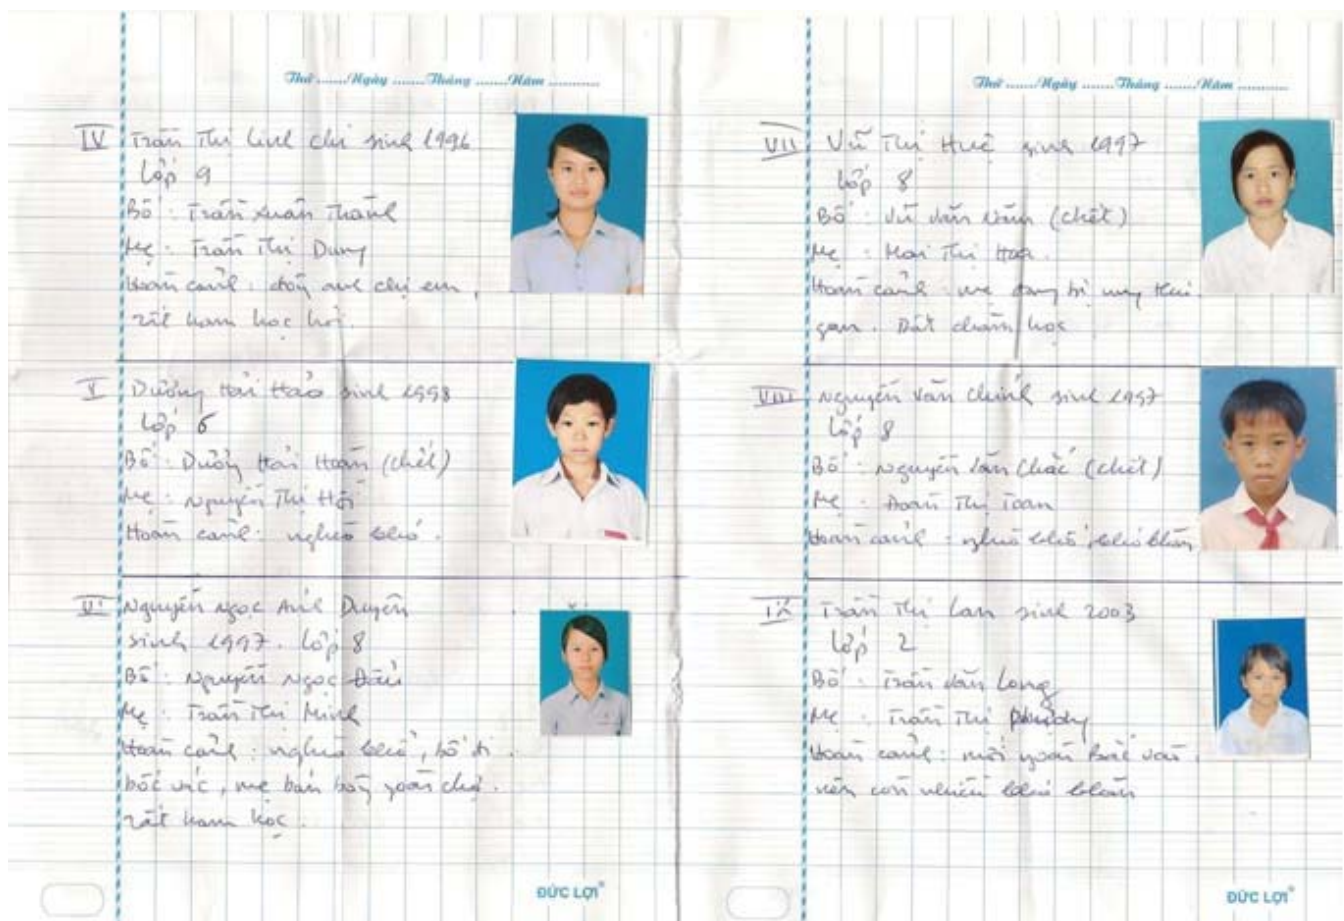 Thứ ......Ngày ......Tháng ......Năm ...........
IV Trần Thị Linh Chi sinh 1996
Lớp 9
Bố : Trần Xuân Thành
Mẹ : Trần Thị Dung
Hoàn cảnh : đông anh chị em,
rất ham học hỏi.
V Dương Hải Hào sinh 1998
Lớp 6
Bố : Dương Hải Hoàn (chết)
Mẹ : Nguyễn Thị Hội
Hoàn cảnh : nghèo khó.
VI Nguyễn Ngọc Ánh Duyên
sinh 1997. Lớp 8
Bố : Nguyễn Ngọc
Mẹ : Trần Thị Minh
Hoàn cảnh : nghèo khổ, bố đi
bốc vác, mẹ bán ngoài chợ.
rất ham học.
ĐỨC LỢI®
Thứ ......Ngày ......Tháng ......Năm ...........
VII Vũ Thị Huệ sinh 1997
Lớp 8
Bố : Vũ Văn Năm (chết)
Mẹ : Mai Thị Hoa
Hoàn cảnh : mẹ đang bị ung thư
gan. Rất chăm học
VIII Nguyễn Văn Chính sinh 1997
Lớp 8
Bố : Nguyễn Văn Chắc (chết)
Mẹ : Đoàn Thị Toan
Hoàn cảnh : nghèo khổ, khó khăn
IX Trần Thị Lan sinh 2003
Lớp 2
Bố : Trần Văn Long
Mẹ : Trần Thị Phượng
Hoàn cảnh : mới ngoài Bắc vào
nên còn nhiều khó khăn
ĐỨC LỢI®